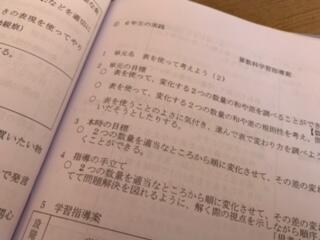 きの表現を使ってや
② 4年生の実践
算数科学習指導案
1 単元名 表を使って考えよう(2)
2 単元の目標
○ 表を使って、変化する2つの数量の和や差を調べることができ
○ 表を使って、変化する2つの数量の和や差の規則性を考え、問
○ 表を使うことのよさに気付き、進んで表で変わり方を調べよう
いだそうとしたりする。
3 本時の目標
○ 2つの数量を適当なところから順に変化させて、その差の変わ
くことができる。
4 指導の手立て
○ 2つの数量を適当なところから順に変化させて、その差の変
てて問題解決を図れるように、解く際の視点を示しながら順序
5 学習指導案
買いたい物
で発言
関心
段